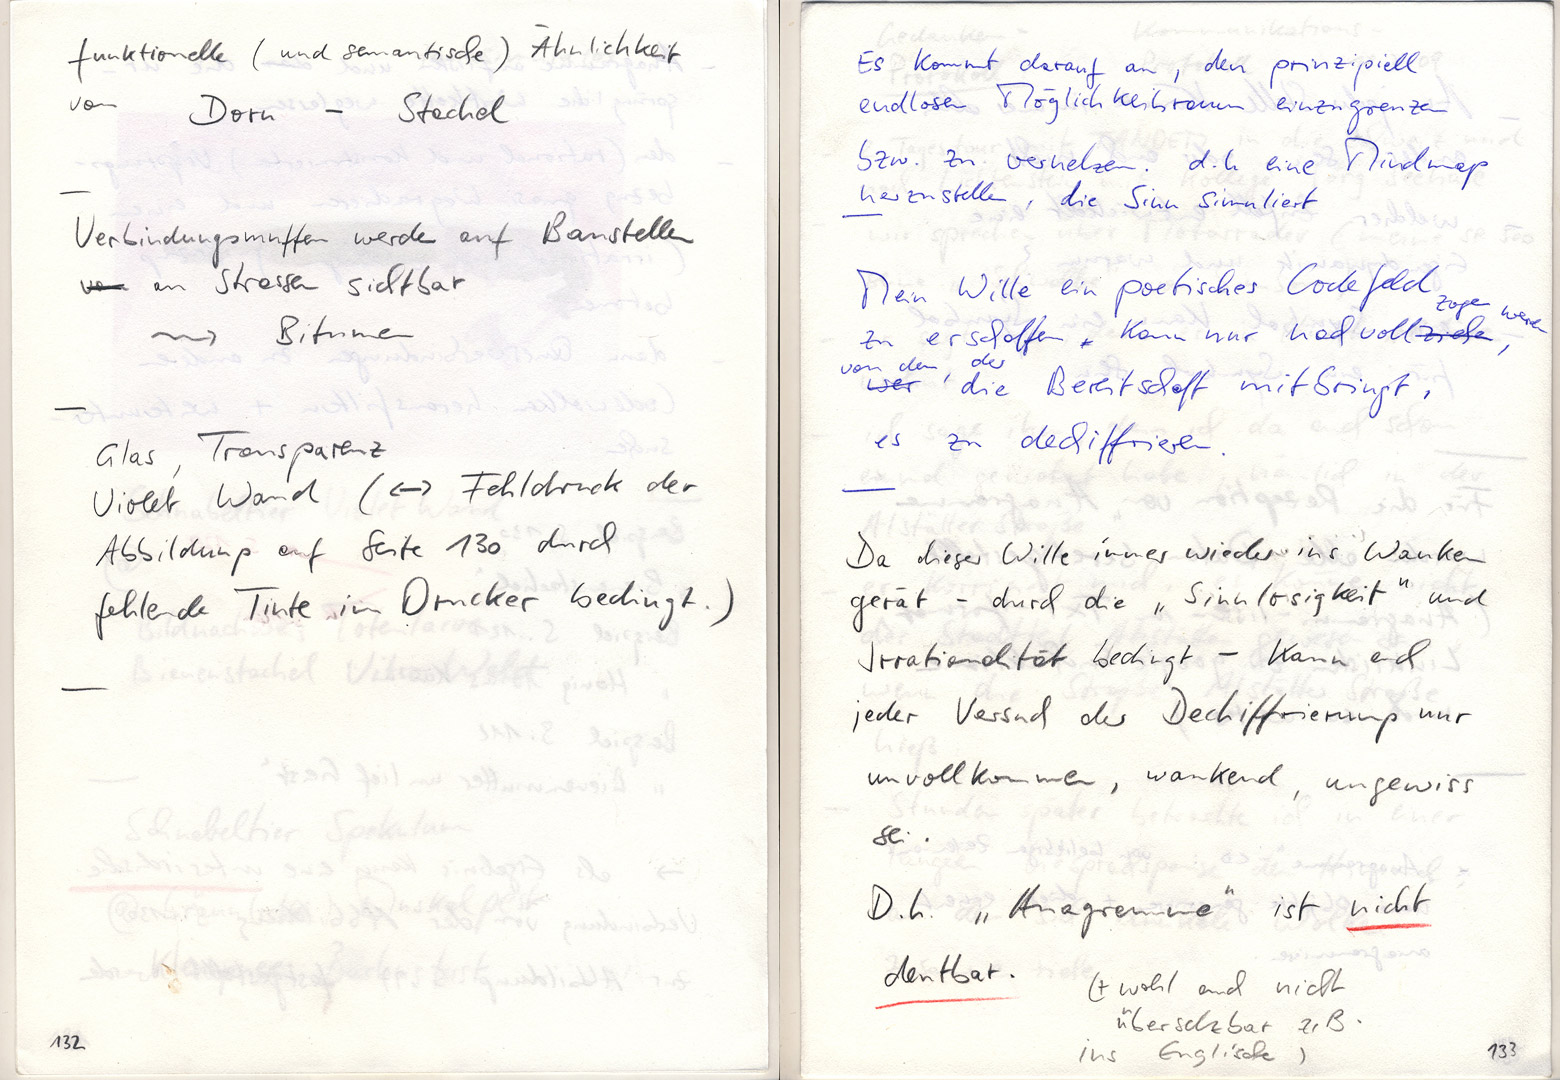 funktionelle (und semantische) Ähnlichkeit
von Dorn – Stachel
—
Verbindungsmuffen werden auf Baustellen
von an Strassen sichtbar
⟿ Bitumen
—
Glas, Transparenz
Violet Wand (↔ Fehldruck der
Abbildung auf Seite 130 durch
fehlende Tinte im Drucker bedingt.)
—
132
Es kommt darauf an, den prinzipiell
endlosen Möglichkeitsraum einzugrenzen
bzw. zu vernetzen. d.h eine Mindmap
herzustellen, die Sinn simuliert
—
Mein Wille ein poetisches Codefeld
zogen werden
zu erschaffen, kann nur nachvollziehen,
von dem, der
wer die Bereitschaft mitbringt,
es zu dechiffrieren.
—
Da dieser Wille immer wieder ins Wanken
gerät – durch die „Sinnlosigkeit" und
Irrationalität bedingt – kann auch
jeder Versuch der Dechiffrierung nur
unvollkommen, wankend, ungewiss
sei.
D.h. „Anagramme" ist nicht
deutbar.
(+ wohl auch nicht
übersetzbar z.B.
ins Englische)
133